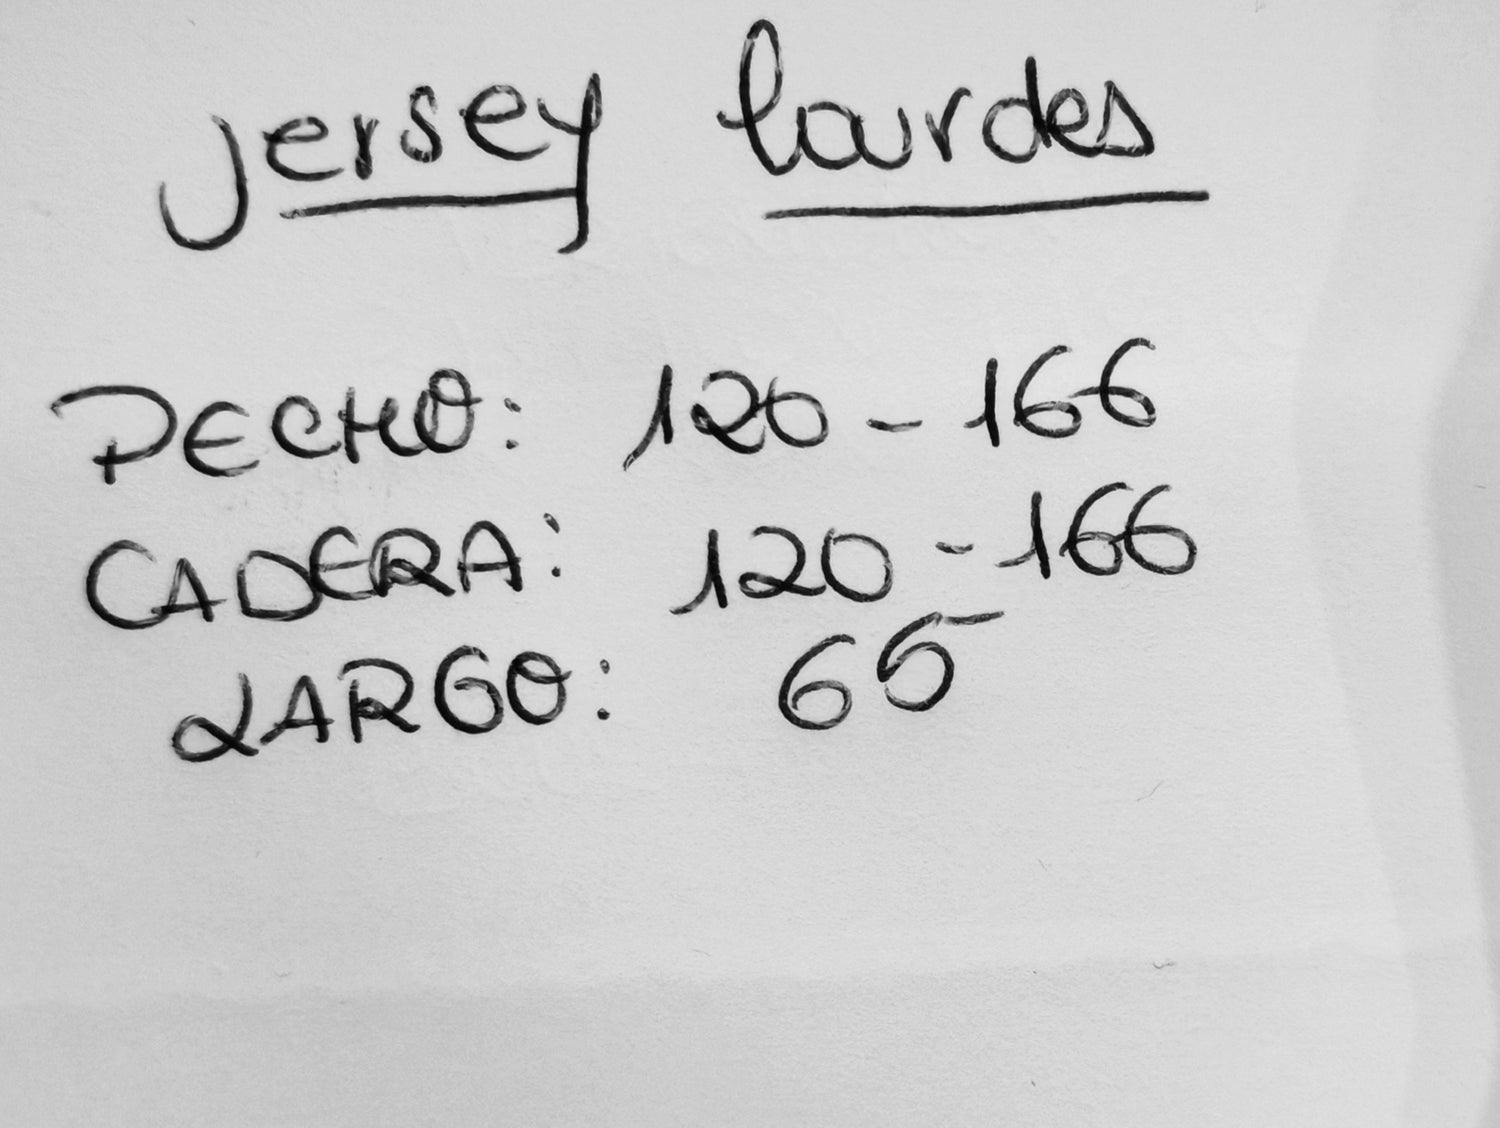 Jersey lourdes
PECHO: 120 - 166
CADERA: 120 - 166
LARGO: 65